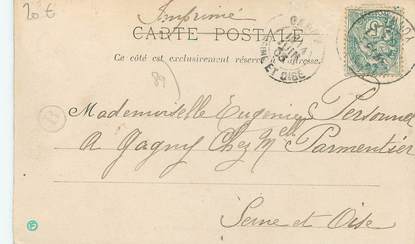 20 €
Imprimé
CARTE POSTALE
Ce côté est exclusivement réservé à l'adresse.
JUIN
SEINE ET OISE
Mademoiselle Eugénie Personne
A Gagny Chez Melle Parmentier
Seine et Oise